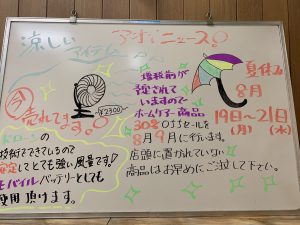 涼しい
アイテム
アジサイニュース!
今
売れてます!
¥2300
ドローンの
技術でできているので
安定してとても強い風量です!
モバイルバッテリーとしても
使用頂けます。
増税前が
謳されて
いますので
ホームケアー商品
30%OFFセールを
8月9月に行います。
店頭に置かれていない
商品はお早めにご注文して下さい。
夏休み
8月
19日~21日
(月)
(水)